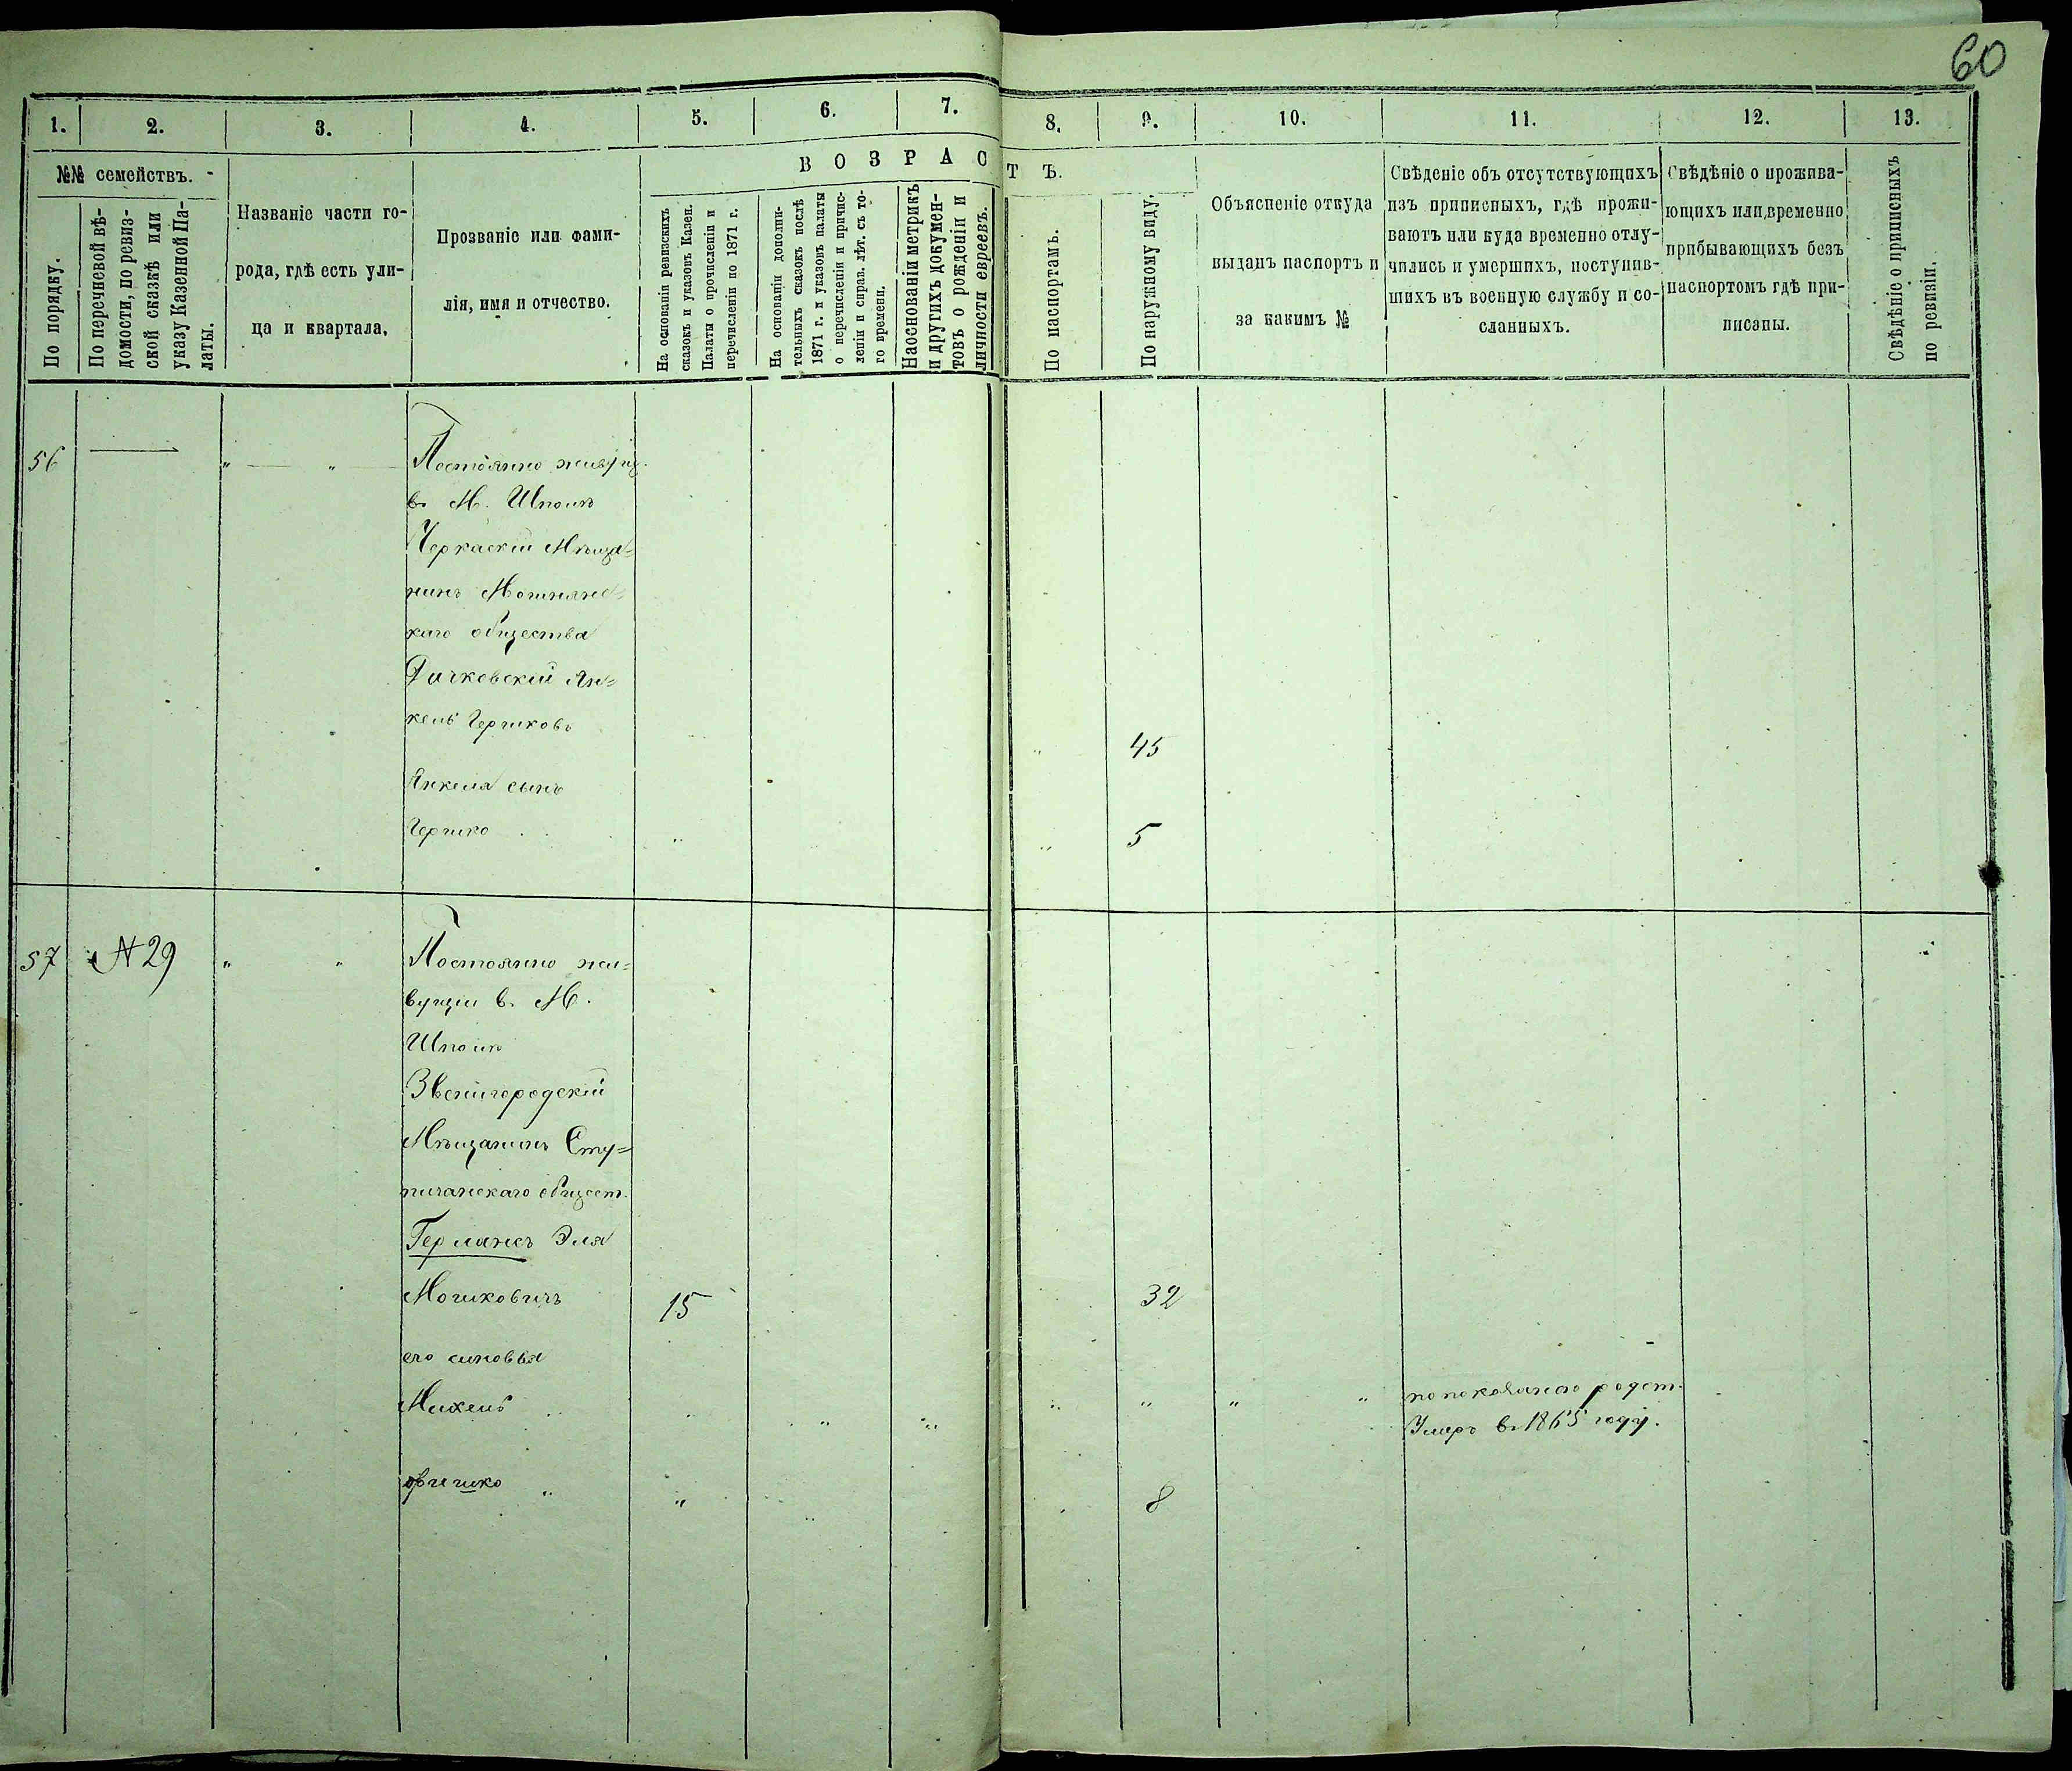 60
1. 2. 3. 4. 5. 6. 7. 8. 9. 10. 11. 12. 13.
№№ семействъ.
По порядку.
По перечневой вѣ-
домости, по ревиз-
ской сказкѣ или
указу Казенной Па-
латы.
Названіе части го-
рода, гдѣ есть ули-
ца и квартала,
Прозваніе или фами-
лія, имя и отчество.
ВОЗРАСТЪ.
На основаніи ревизскихъ
сказокъ и указовъ Казен.
Палаты о прочисленіи и
перечисленіи по 1871 г.
На основаніи дополни-
тельныхъ сказокъ послѣ
1871 г. и указовъ палаты
о перечисленіи и причис-
леніи и справ. лѣт. съ то-
го времени.
На основаніи метрикъ
и другихъ докумен-
товъ о рожденіи и
личности евреевъ.
По паспортамъ.
По наружному виду.
Объясненіе откуда
выданъ паспортъ и
за какимъ №
Свѣденіе объ отсутствующихъ
изъ приписныхъ, гдѣ прожи-
ваютъ или куда временно отлу-
чились и умершихъ, поступив-
шихъ въ военную службу и со-
сланныхъ.
Свѣдѣніе о прожива-
ющихъ или временно
прибывающихъ безъ
паспортомъ гдѣ при-
писаны.
Свѣдѣніе о приписныхъ
по ревизіи.
56 — „ — „ — Постоянно живущ.
в. М. Шполѣ
Черкаскій Мѣща=
нинъ Мошнянс=
каго общества
Дичковскій Ян=
кель Гершковъ „ 45
Янкеля сынъ
Гершко „ „ 5
57 №29 „ „ Постоянно жи=
вущіи в. М.
Шполѣ
Звенигородскій
Мѣщанинъ Сту=
пичанскаго общест.
Германъ Эля
Мошковичъ 15 32
его синовья
Михель „ „ „ „ „ „ родст.
Умеръ в. 1865 году.
„ „ 8